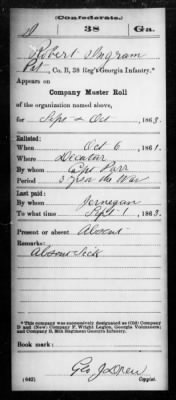 (Confederate.)
38 Ga.
Robert Ingram
Pvt, Co. B, 38 Reg't Georgia Infantry.*
Appears on
Company Muster Roll
of the organization named above,
for Sept & Oct, 1863.
Enlisted:
When Oct 6, 1861.
Where Decatur
By whom Capt Parr
Period 3 years or the War
Last paid:
By whom Jernegan
To what time Sept 1, 1863.
Present or absent Absent
Remarks:
Absent Sick
*This company was successively designated as (Old) Company
D and (New) Company F, Wright Legion, Georgia Volunteers;
and Company B, 38th Regiment Georgia Infantry.
Book mark:
Geo. J. Drew
(642) Copyist.